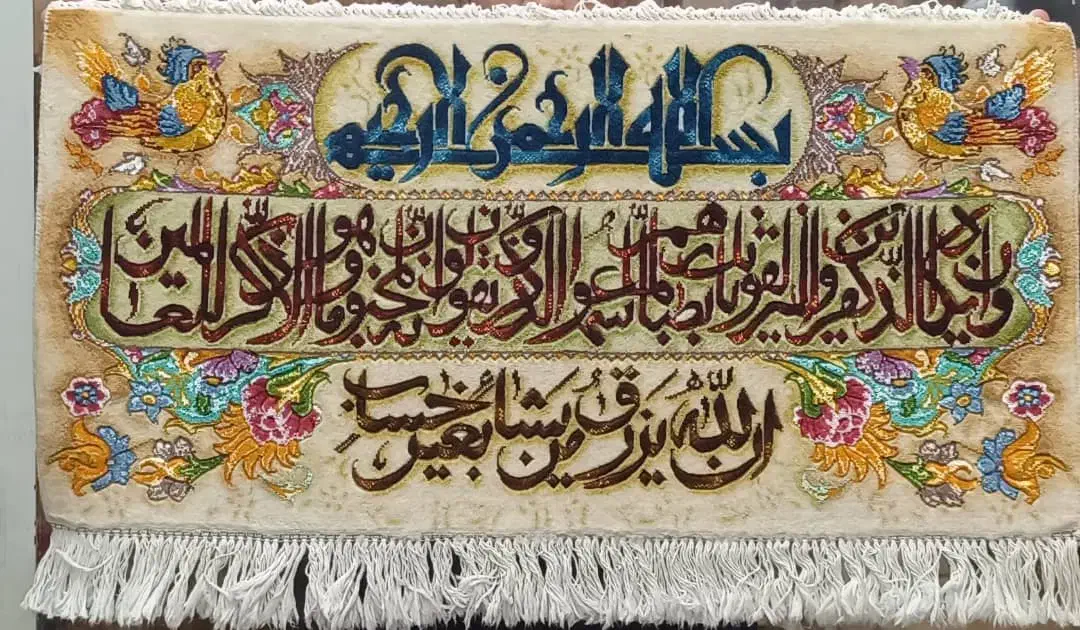 بسم الله الرحمن الرحيم
وان يكاد الذين كفروا ليزلقونك بابصارهم لما سمعوا الذكر ويقولون انه لمجنون وما هو الا ذكر للعالمين
ان الله يرزق من يشاء بغير حساب